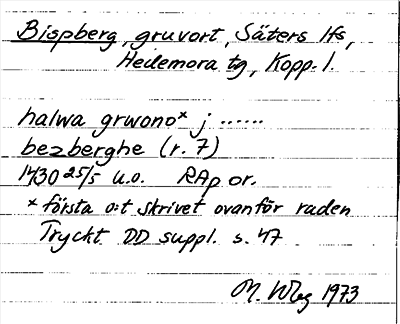 Bispberg, gruvort, Säters lfs,
Hedemora tg, Kopp. l.
halwa grwono* j ......
bezberghe (r. 7)
1430 25/5 u.o. RAp or.
* första o:t skrivet ovanför raden
Tryckt DD suppl. s. 47
M. 1973